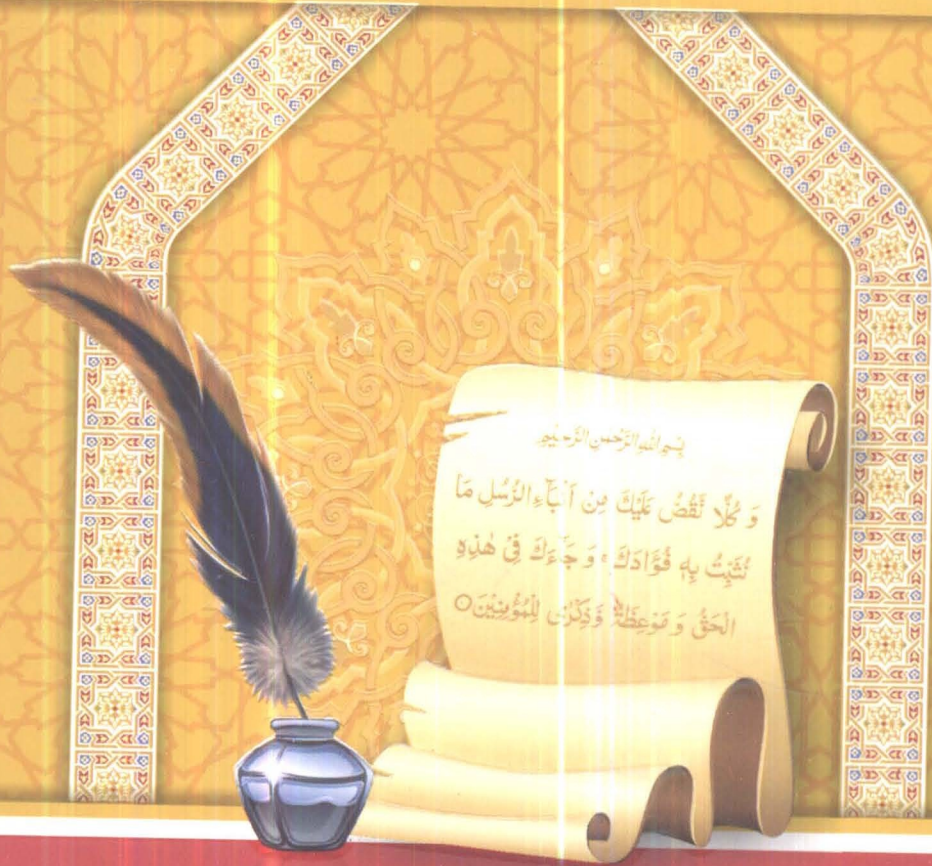 بِسْمِ اللهِ الرَّحْمٰنِ الرَّحِيْمِ
وَ كُلًّا نَّقُصُّ عَلَيْكَ مِنْ اَنْۢبَآءِ الرُّسُلِ مَا
نُثَبِّتُ بِهٖ فُؤَادَكَ ۚ وَ جَآءَكَ فِیْ هٰذِهِ
الْحَقُّ وَ مَوْعِظَةٌ وَّذِكْرٰی لِلْمُؤْمِنِیْنَ○